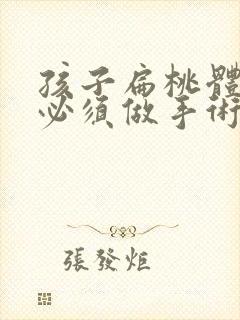 孩子扁桃體
必須做手術
張發炬